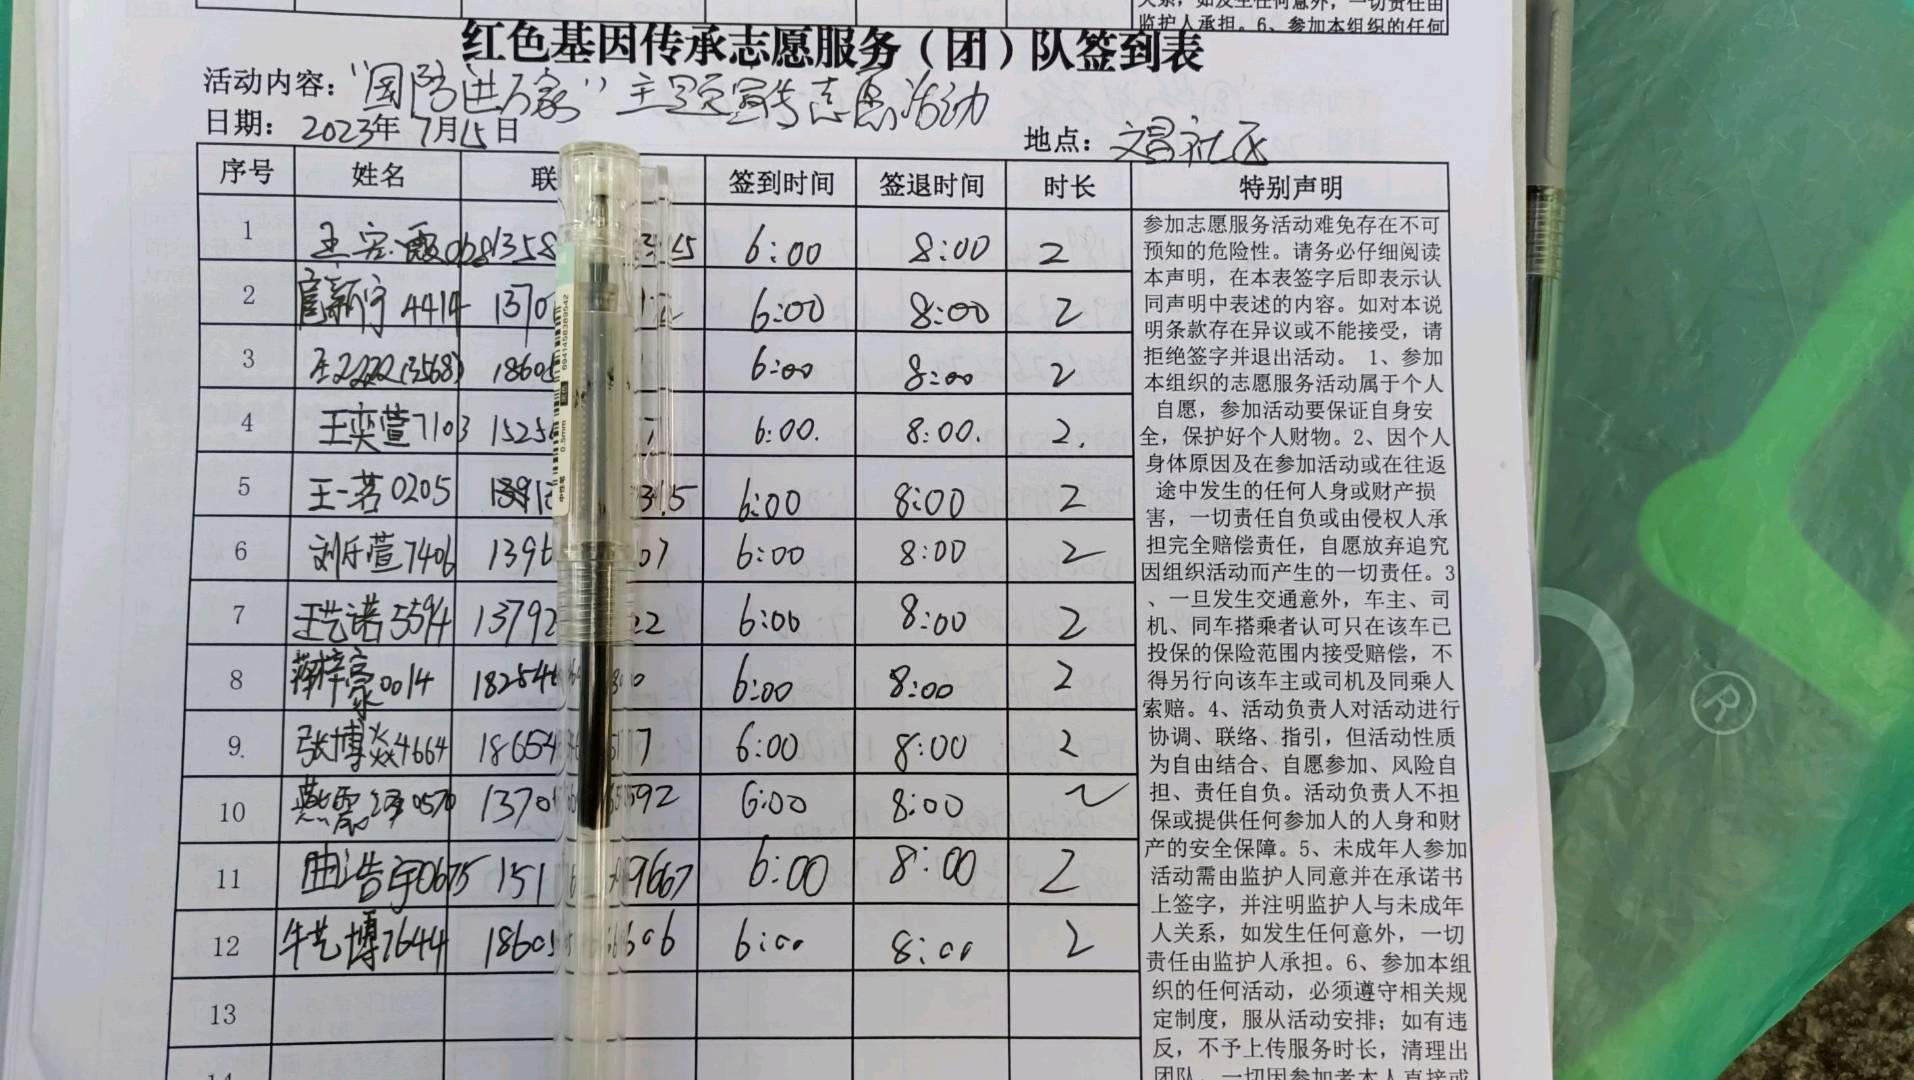 关系，如发生任何意外，一切责任由
监护人承担。6、参加本组织的任何
红色基因传承志愿服务（团）队签到表
活动内容：“国防进万家”主题宣传志愿活动
日期：2023年7月15日
地点：文昌社区
序号 姓名 联 签到时间 签退时间 时长 特别声明
1 6:00 8:00 2
2 4414 1370 6:00 8:00 2
3 (3568) 18605 6:00 8:00 2
4 王奕萱7103 1525 7 6:00. 8:00. 2.
5 王一茗0205 1391 315 6:00 8:00 2
6 刘仟萱7406 1396 07 6:00 8:00 2
7 王艺诺5594 13792 22 6:00 8:00 2
8 0014 18254 6:00 8:00 2
9. 张博焱4664 18654 17 6:00 8:00 2
10 0570 1370 592 6:00 8:00 2
11 曲浩宇0675 151 9667 6:00 8:00 2
12 牛艺博7644 18605 606 6:00 8:00 2
13
14
参加志愿服务活动难免存在不可
预知的危险性。请务必仔细阅读
本声明，在本表签字后即表示认
同声明中表述的内容。如对本说
明条款存在异议或不能接受，请
拒绝签字并退出活动。 1、参加
本组织的志愿服务活动属于个人
自愿，参加活动要保证自身安
全，保护好个人财物。2、因个人
身体原因及在参加活动或在往返
途中发生的任何人身或财产损
害，一切责任自负或由侵权人承
担完全赔偿责任，自愿放弃追究
因组织活动而产生的一切责任。3
、一旦发生交通意外，车主、司
机、同车搭乘者认可只在该车已
投保的保险范围内接受赔偿，不
得另行向该车主或司机及同乘人
索赔。4、活动负责人对活动进行
协调、联络、指引，但活动性质
为自由结合、自愿参加、风险自
担、责任自负。活动负责人不担
保或提供任何参加人的人身和财
产的安全保障。5、未成年人参加
活动需由监护人同意并在承诺书
上签字，并注明监护人与未成年
人关系，如发生任何意外，一切
责任由监护人承担。6、参加本组
织的任何活动，必须遵守相关规
定制度，服从活动安排；如有违
反，不予上传服务时长，清理出
团队。一切因参加者本人直接或
0.5mm
中性笔
6941458389542
®